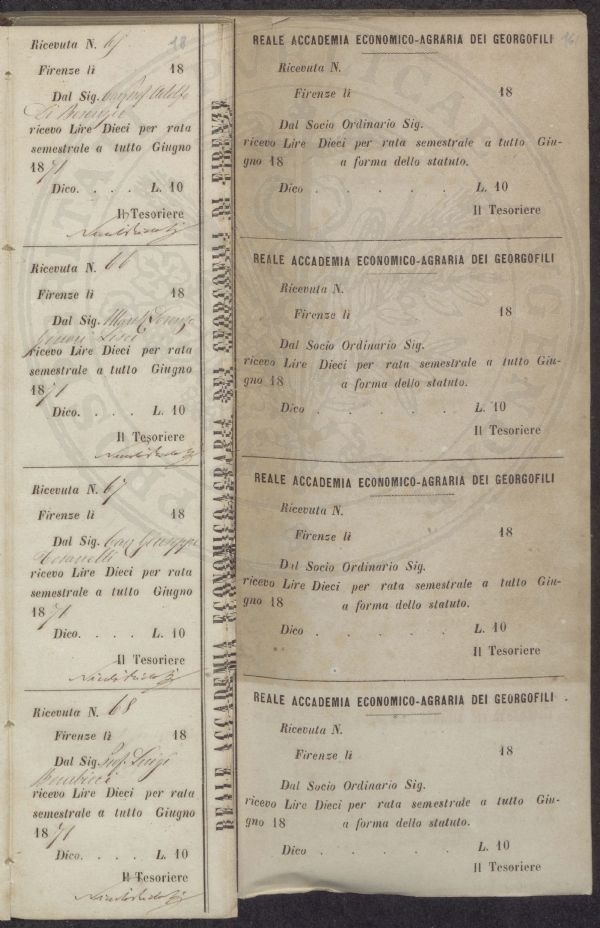 18
Ricevuta N. 65
Firenze lì 18
Dal Sig. Adolfo
Di Berenger
ricevo Lire Dieci per rata
semestrale a tutto Giugno
1871
Dico. . . . L. 10
Il Tesoriere
Ricevuta N. 66
Firenze lì 18
Dal Sig. March. Lorenzo
Ginori Lisci
ricevo Lire Dieci per rata
semestrale a tutto Giugno
1871
Dico. . . . L. 10
Il Tesoriere
Ricevuta N. 67
Firenze lì 18
Dal Sig. Giuseppe
ricevo Lire Dieci per rata
semestrale a tutto Giugno
1871
Dico. . . . L. 10
Il Tesoriere
Ricevuta N. 68
Firenze lì 18
Dal Sig. Prof. Luigi
Bombicci
ricevo Lire Dieci per rata
semestrale a tutto Giugno
1871
Dico. . . . L. 10
Il Tesoriere
REALE ACCADEMIA ECONOMICO-AGRARIA DEI GEORGOFILI DI FIRENZE
REALE ACCADEMIA ECONOMICO-AGRARIA DEI GEORGOFILI
Ricevuta N.
Firenze lì 18
Dal Socio Ordinario Sig.
ricevo Lire Dieci per rata semestrale a tutto Giu-
gno 18 a forma dello statuto.
Dico . . . . L. 10
Il Tesoriere
REALE ACCADEMIA ECONOMICO-AGRARIA DEI GEORGOFILI
Ricevuta N.
Firenze lì 18
Dal Socio Ordinario Sig.
ricevo Lire Dieci per rata semestrale a tutto Giu-
gno 18 a forma dello statuto.
Dico . . . . L. 10
Il Tesoriere
REALE ACCADEMIA ECONOMICO-AGRARIA DEI GEORGOFILI
Ricevuta N.
Firenze lì 18
Dal Socio Ordinario Sig.
ricevo Lire Dieci per rata semestrale a tutto Giu-
gno 18 a forma dello statuto.
Dico . . . . L. 10
Il Tesoriere
REALE ACCADEMIA ECONOMICO-AGRARIA DEI GEORGOFILI
Ricevuta N.
Firenze lì 18
Dal Socio Ordinario Sig.
ricevo Lire Dieci per rata semestrale a tutto Giu-
gno 18 a forma dello statuto.
Dico . . . . L. 10
Il Tesoriere